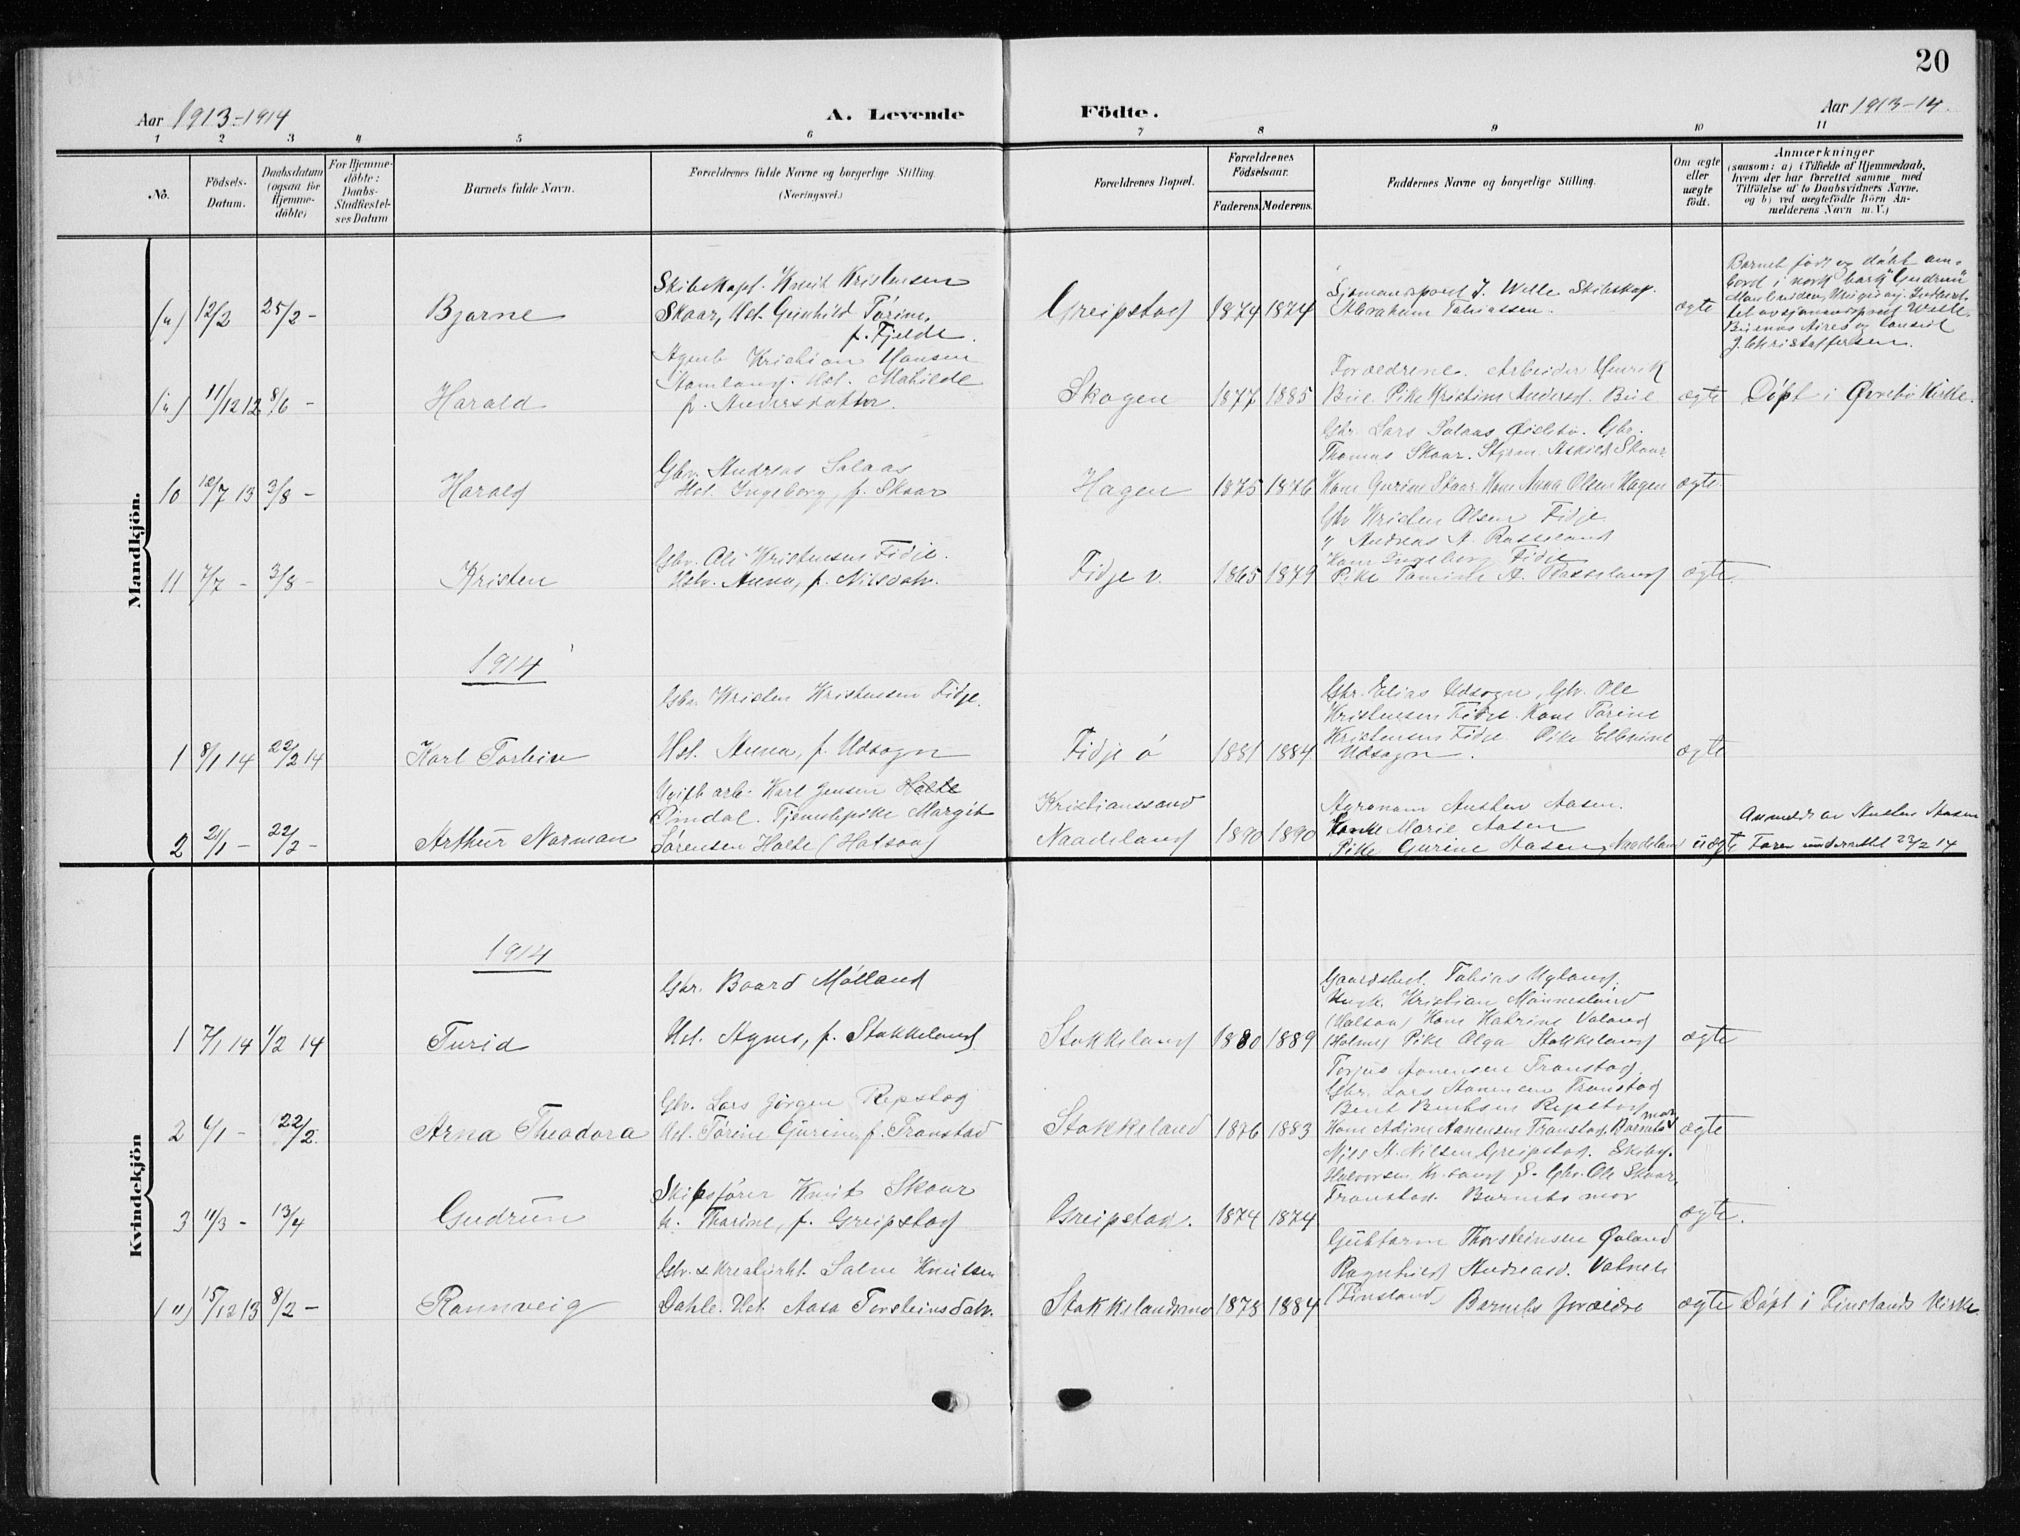 20
Aar 1913-1914
A. Levende
Födte.
Aar 1913-14.
1 2 3 4 5 6 7 8 9 10 11
No.
Födsels-
Datum.
Daabsdatum
(ogsaa for
Hjemme-
döbte)
For Hjemme-
döbte:
Daabs-
Stadfæstel-
ses Datum
Barnets fulde Navn.
Forældrenes fulde Navne og borgerlige Stilling.
(Næringsvei.)
Forældrenes Bopæl.
Forældrenes
Födselsaar.
Faderens.
Moderens.
Faddernes Navne og borgerlige Stilling.
Om ægte
eller
uægte
født.
Anmærkninger
(saasom: a) i Tilfælde af Hjemmedaab,
hvem der har forrettet samme med
Tilföielse af to Daabsvidners Navne.
og b) ved uægtefödte Börn An-
melderens Navn m.V.)
Mandkjön.
(u) 12/2 25/2 -
Bjarne
Skibskapt. Knut Kristensen
Skaar, Hst. Gunhild Törine,
f. Fjelde.
Greipstad
1874 1874
Sjømandsprest J. Welle Skibskap.
Abraham Tobiassen.
ægte
Barnet født og døbt om-
bord i norsk bark "Gudrun"
Buenos Aires og Consul
J. Christoffersen.
(u) 11/12 12 8/6 -
Harald
Agent Kristian Hansen
Hst. Mathilde
f. Andersdatter.
Skogen
1877 1885
Forældrene. Arbeider Henrik
Bue. Pike Kristine Andersd. Bue
ægte
Døpt i Øvrebø Kirke.
10 12/7 13 3/8 -
Harald
Gbr. Andreas Salaas
Hst. Ingeborg, f. Skaar
Hagen
1875 1876
Gbr. Lars Salaas Øislebø. Gbr.
Thomas Skaar. Styrm. Askild Skaar
Kone Gurine Skaar. Kone Anna Olsen Hagen
ægte
11 7/7 - 3/8 -
Kristen
Gbr. Ole Kristensen Fidje.
Hst. Anna, f. Nilsdatr.
Fidje v.
1865 1879
Gbr Kristen Olsen Fidje.
" Andreas A. Rosseland
Kone Ingeborg Fidje
Pike Tomine A. Rosseland
ægte
1914
1 8/1 14 22/2 14
Karl Torbin
Gbr. Kristen Kristensen Fidje.
Hst. Anna, f. Udsogn
Fidje ø
1881 1884
Gbr. Elias Udsogn, Gbr. Ole
Kristensen Fidje. Kone Torine
Kristensen Fidje Pike Elbjine
Udsogn.
ægte
2 21/1 - 22/2 -
Arthur Norman
Ugift arb. Karl Jensen Holte
Omdal. Tjenstepike Margit
Sørensen Holte (Hatsog)
Kristianssand
Naadeland
1890 1890
Agronom Austen Aasen.
Kone Marie Aasen
Pike Gurine Aasen, Naadeland
uægt
Anmeldt av Austen Aasen
Faren underrettet 22/2 14
Kvindekjön
1914
1 7/1 14 1/2 14
Turid
Gbr. Baard Mølland
Hst. Agnes, f. Stokkeland
Stokkeland
1880 1889
Gaardsbest. Tobias Ugland.
Ungk. Kristian Monnesland
Kone Katrine Valand
(Holme) Pike Olga Stokkeland
ægte
2 6/1 - 22/2.
Arna Theodora
Gbr. Lars Jørgen Repstad
Hst. Torine Gurine f. Tronstad
Stokkeland
1876 1883
Torjus Aanensen Tronstad.
Gbr. Lars Aanensen Tronstad
Bent Bentsen Repstad
Kone Adine Aanensen Tronstad. Barnets mor
ægte
3 11/3 - 13/4
Gudrun
Skipsfører Knut Skaar
h. Thorine, f. Greipstad
Greipstad.
1874 1874
Nils A. Nilsen Greipstad.
Halvorsen Kr.sand S. Gbr. Ole Skaar,
Tronstad. Barnets mor
ægte.
(u) 15/12 13 8/2 -
Rannveig
Gbr. & kreaturht. Salve Knutsen
Dahle. Hst. Aasa Torsteinsdatr.
Stokkelandsmo
1878 1884
Guttorm Thorsteinsen Øvland
Ragnhild Andreasd. Vatneli
(Finsland) Barnets forældre
ægte
Døpt i Finslands Kirke.